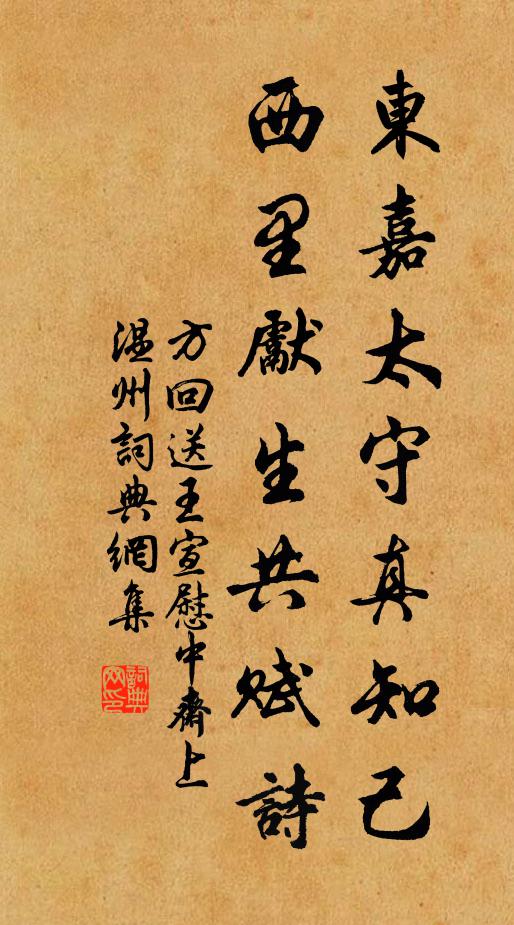 東嘉太守真知己
西里獻生共賦詩
方回送王宣慰中齋上
溫州詞典網集
詞典網印